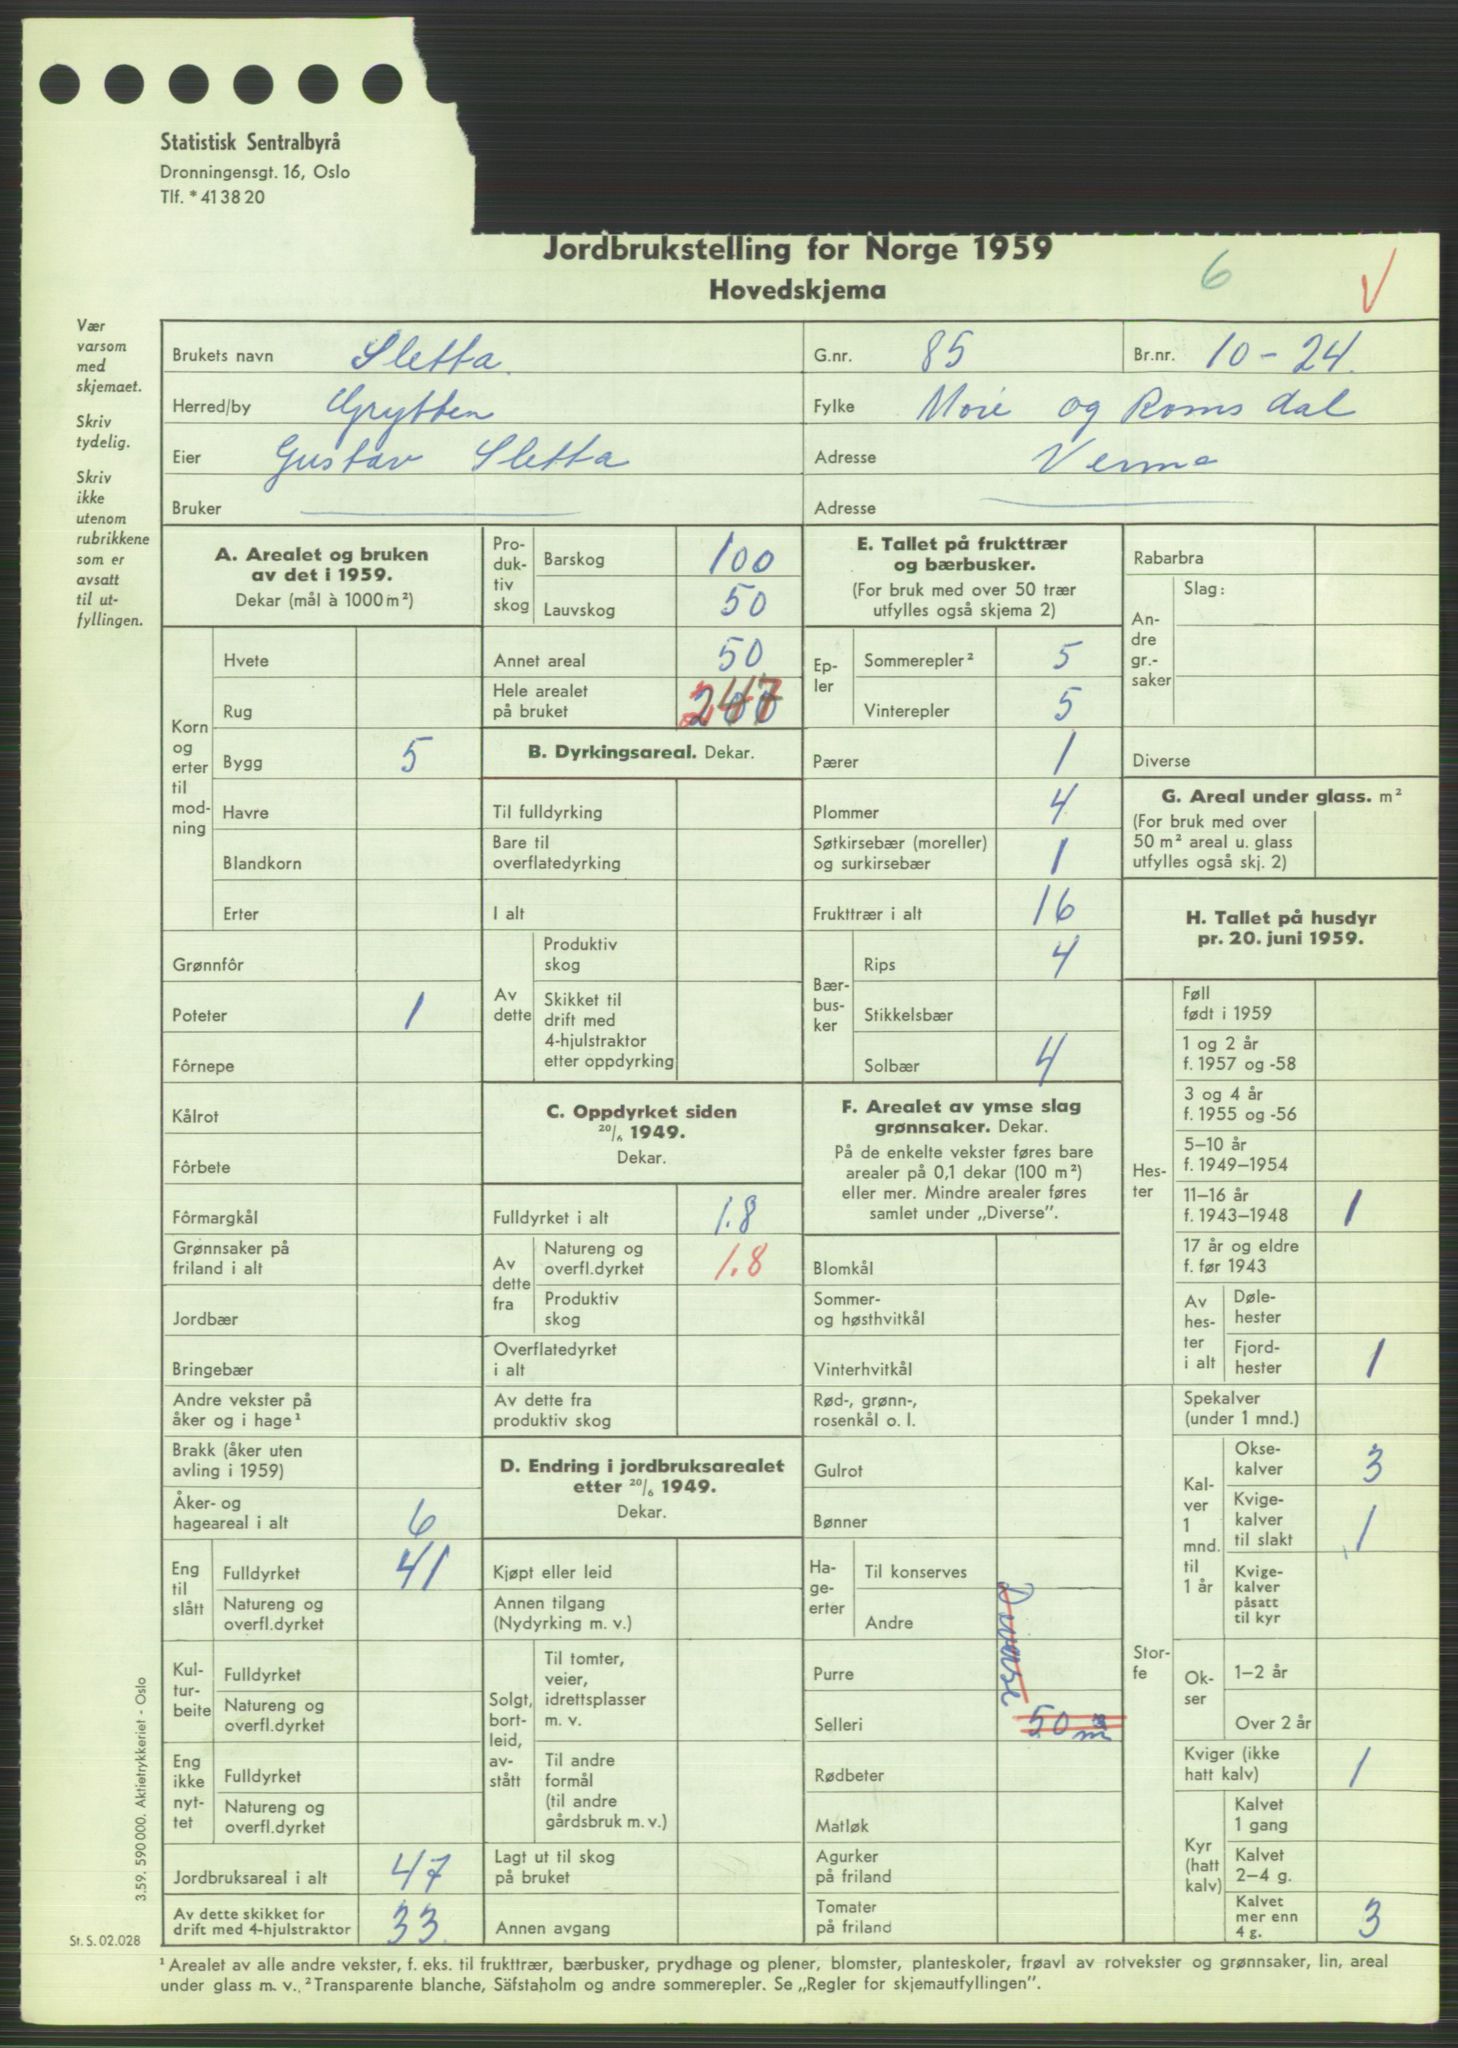 Statistisk Sentralbyrå
Dronningensgt. 16, Oslo
Tlf. * 41 38 20
Jordbrukstelling for Norge 1959
Hovedskjema
6
V
Vær
varsom
med
skjemaet.
Skriv
tydelig.
Skriv
ikke
utenom
rubrikkene
som er
avsatt
til ut-
fyllingen.
Brukets navn Sletta. G.nr. 85 Br.nr. 10 – 24.
Herred/by Grytten Fylke Møre og Romsdal
Eier Gustav Sletta Adresse Verma
Bruker Adresse
A. Arealet og bruken
av det i 1959.
Dekar (mål à 1000 m²)
Korn
og
erter
til
mod-
ning
Hvete
Rug
Bygg 5
Havre
Blandkorn
Erter
Grønnfôr
Poteter 1
Fôrnepe
Kålrot
Fôrbete
Fôrmargkål
Grønnsaker på
friland i alt
Jordbær
Bringebær
Andre vekster på
åker og i hage¹
Brakk (åker uten
avling i 1959)
Åker- og
hageareal i alt 6
Eng
til
slått
Fulldyrket 41
Natureng og
overfl.dyrket
Kul-
tur-
beite
Fulldyrket
Natureng og
overfl.dyrket
Eng
ikke
nyt-
tet
Fulldyrket
Natureng og
overfl.dyrket
Jordbruksareal i alt 47
Av dette skikket for
drift med 4-hjulstraktor 33
Pro-
duk-
tiv
skog
Barskog 100
Lauvskog 50
Annet areal 50
Hele arealet
på bruket 247
B. Dyrkingsareal. Dekar.
Til fulldyrking
Bare til
overflatedyrking
I alt
Av
dette
Produktiv
skog
Skikket til
drift med
4-hjulstraktor
etter oppdyrking
C. Oppdyrket siden
20/6 1949.
Dekar.
Fulldyrket i alt 1.8
Av
dette
fra
Natureng og
overfl.dyrket 1.8
Produktiv
skog
Overflatedyrket
i alt
Av dette fra
produktiv skog
D. Endring i jordbruksarealet
etter 20/6 1949.
Dekar.
Kjøpt eller leid
Annen tilgang
(Nydyrking m. v.)
Solgt,
bort-
leid,
av-
stått
Til tomter,
veier,
idrettsplasser
m. v.
Til andre
formål
(til andre
gårdsbruk m. v.)
Lagt ut til skog
på bruket
Annen avgang
E. Tallet på frukttrær
og bærbusker.
(For bruk med over 50 trær
utfylles også skjema 2)
Ep-
ler
Sommerepler² 5
Vinterepler 5
Pærer 1
Plommer 4
Søtkirsebær (moreller)
og surkirsebær 1
Frukttrær i alt 16
Bær-
bus-
ker
Rips 4
Stikkelsbær
Solbær 4
F. Arealet av ymse slag
grønnsaker. Dekar.
På de enkelte vekster føres bare
arealer på 0,1 dekar (100 m²)
eller mer. Mindre arealer føres
samlet under „Diverse”.
Blomkål
Sommer-
og høsthvitkål
Vinterhvitkål
Rød-, grønn-,
rosenkål o. l.
Gulrot
Bønner
Ha-
ge-
erter
Til konserves
Andre
Diverse
Purre
Selleri 50 m²
Rødbeter
Matløk
Agurker
på friland
Tomater
på friland
Rabarbra
An-
dre
gr.-
saker
Slag:
Diverse
G. Areal under glass. m²
(For bruk med over
50 m² areal u. glass
utfylles også skj. 2)
H. Tallet på husdyr
pr. 20. juni 1959.
Hes-
ter
Føll
født i 1959
1 og 2 år
f. 1957 og -58
3 og 4 år
f. 1955 og -56
5–10 år
f. 1949–1954
11–16 år
f. 1943–1948 1
17 år og eldre
f. før 1943
Av
hes-
ter
i alt
Døle-
hester
Fjord-
hester 1
Stor-
fe
Spekalver
(under 1 mnd.)
Kal-
ver
1
mnd.
til
1 år
Okse-
kalver 3
Kvige-
kalver
til slakt 1
Kvige-
kalver
påsatt
til kyr
Ok-
ser
1–2 år
Over 2 år
Kviger (ikke
hatt kalv) 1
Kyr
(hatt
kalv)
Kalvet
1 gang
Kalvet
2–4 g.
Kalvet
mer enn
4 g. 3
3.59. 590 000. Aktietrykkeriet - Oslo
St. S. 02.028
¹ Arealet av alle andre vekster, f. eks. til frukttrær, bærbusker, prydhage og plener, blomster, planteskoler, frøavl av rotvekster og grønnsaker, lin, areal
under glass m. v. ² Transparente blanche, Säfstaholm og andre sommerepler. Se „Regler for skjemautfyllingen”.